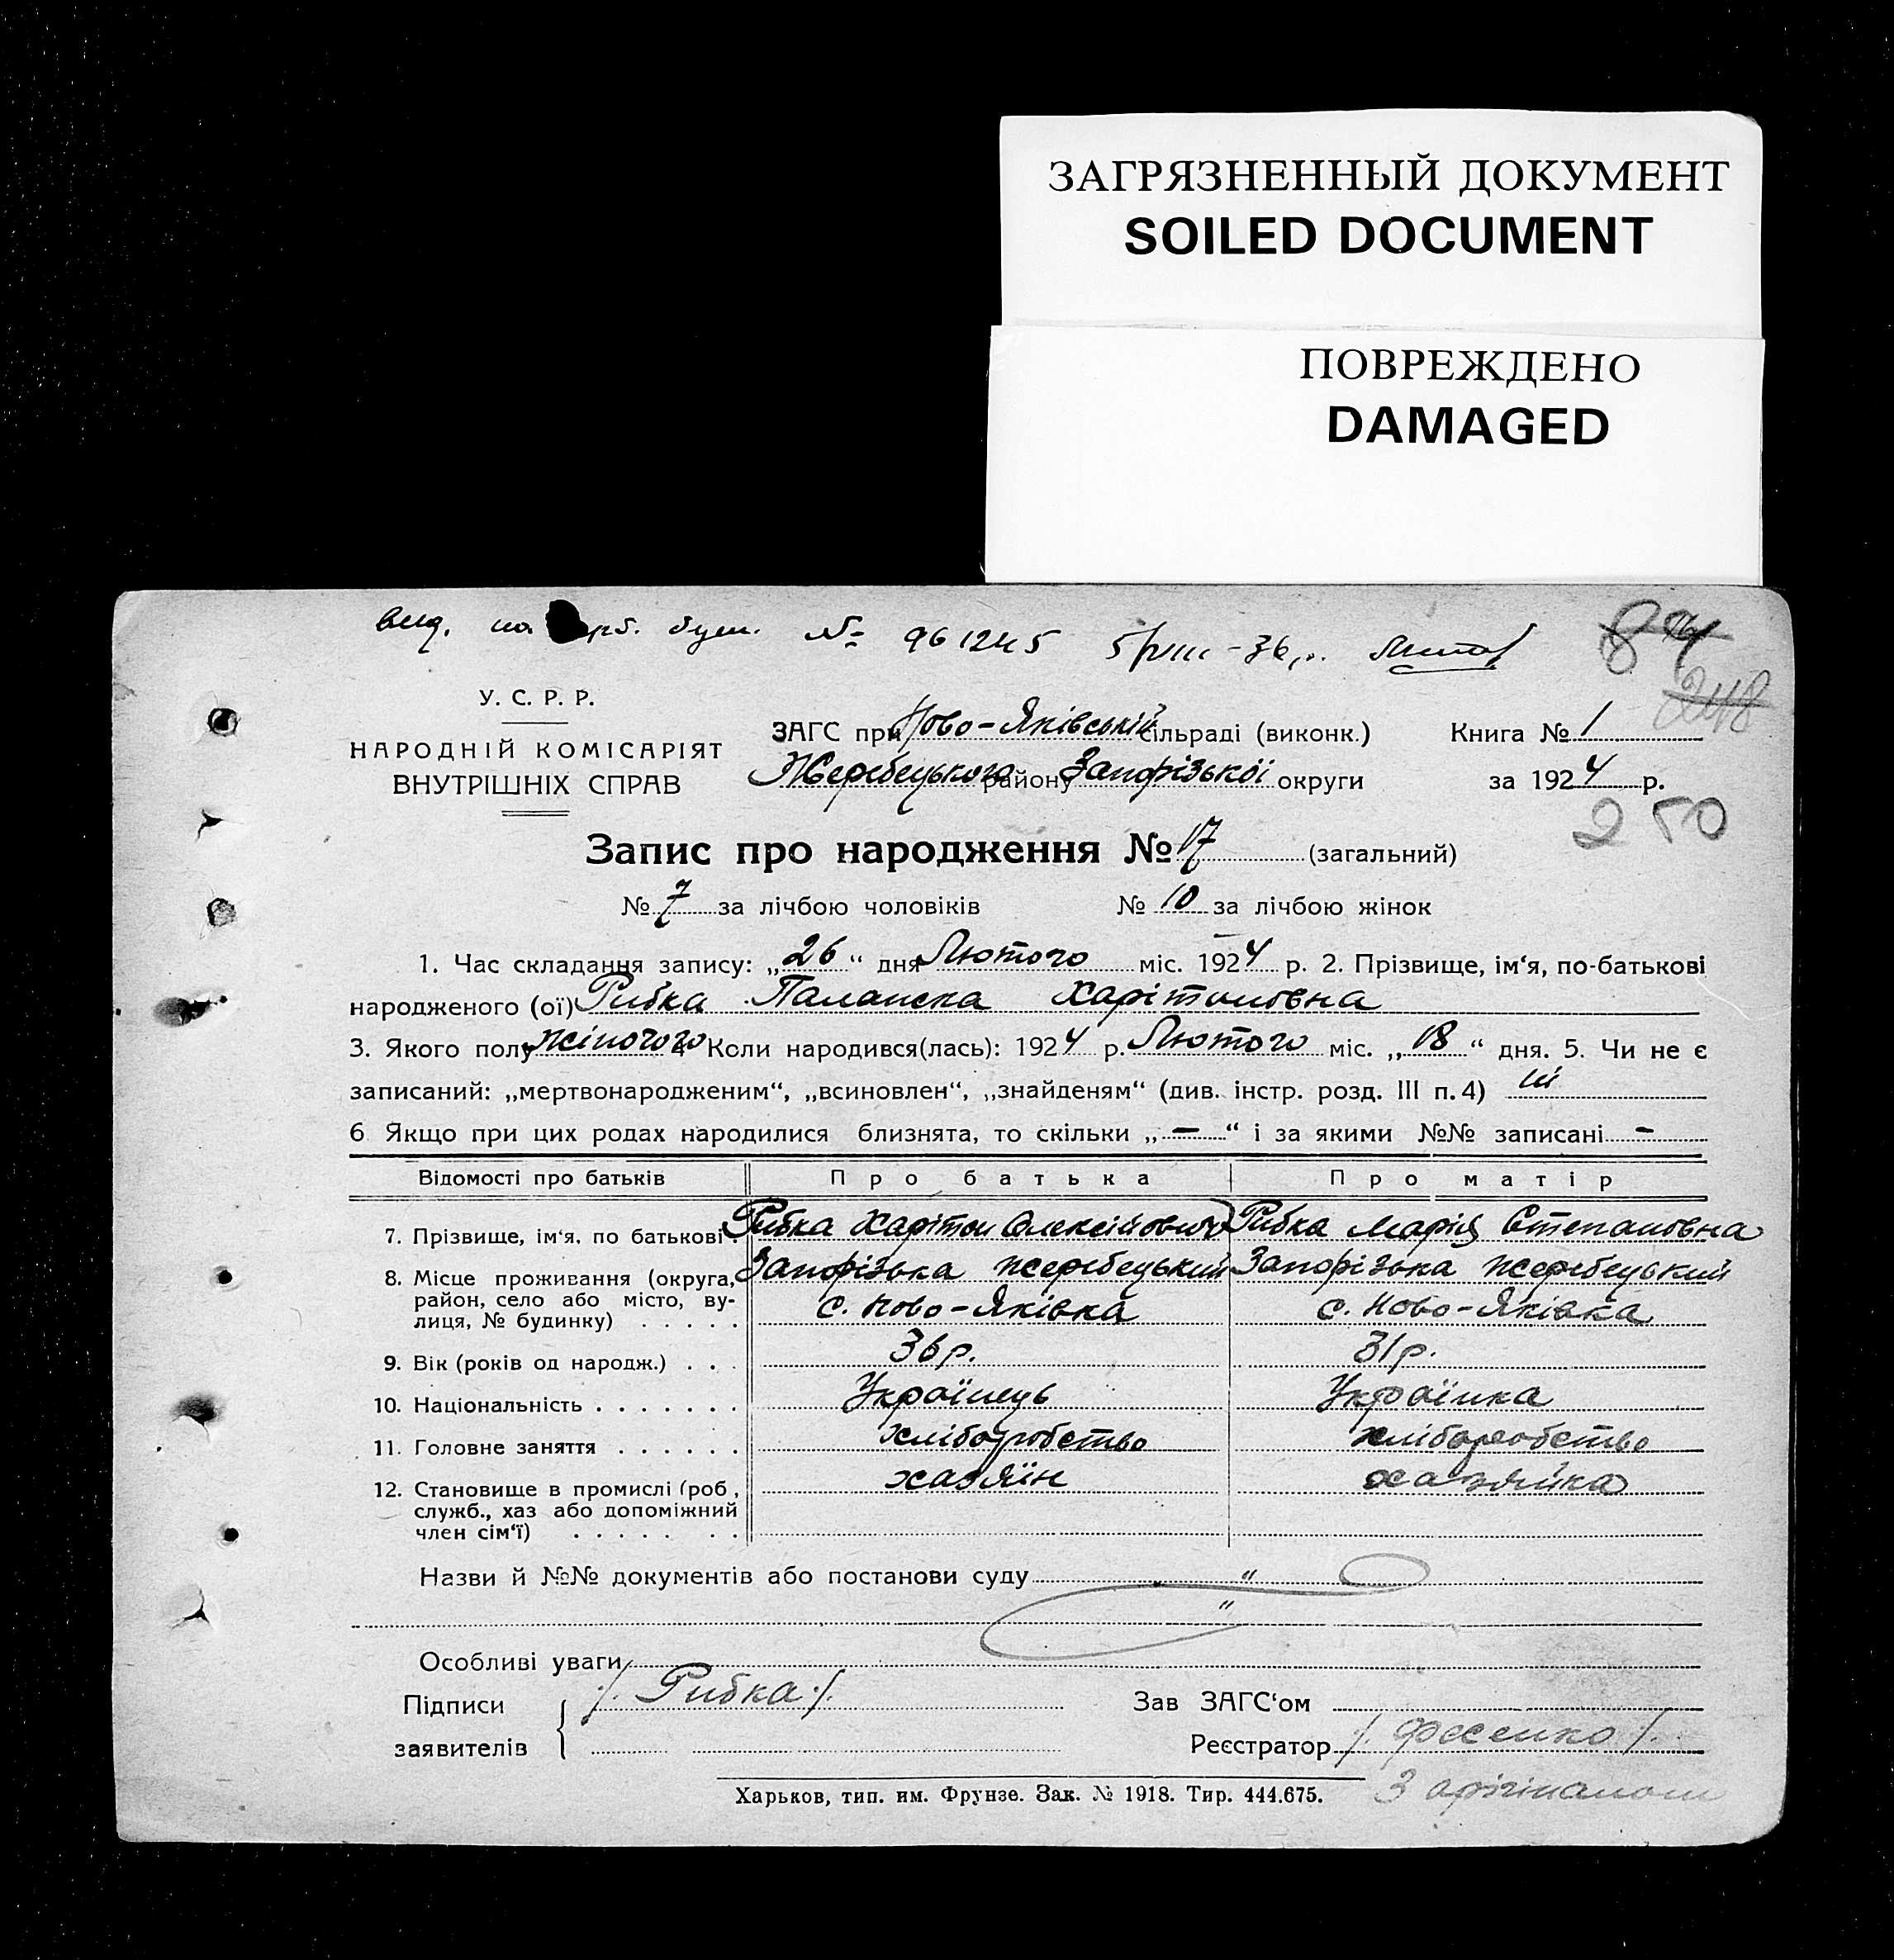 ЗАГРЯЗНЕННЫЙ ДОКУМЕНТ
SOILED DOCUMENT
ПОВРЕЖДЕНО
DAMAGED
вид. на рб. бум. № 961245 5/VIII-36 р.
248
У. С. Р. Р.
НАРОДНІЙ КОМІСАРІЯТ
ВНУТРІШНІХ СПРАВ
ЗАГС при Ново-Яківській сільраді (виконк.) Книга № 1
Жеребецького району Запорізької округи за 1924 р.
250
Запис про народження № 17 (загальний)
№ 7 за лічбою чоловіків № 10 за лічбою жінок
1. Час складання запису: „26“ дня Лютого міс. 1924 р. 2. Прізвище, ім‘я, по-батькові
народженого (ої) Рибка Паланска Харітоновна
3. Якого полу жіночого 4 Коли народився(лась): 1924 р. Лютого міс. „18“ дня. 5. Чи не є
записаний: „мертвонародженим“, „всиновлен“, „знайденям“ (див. інстр. розд. III п. 4) ні
6 Якщо при цих родах народилися близнята, то скільки „—“ і за якими №№ записані —
Відомості про батьків Про батька Про матір
7. Прізвище, ім‘я, по батькові. Рибка Харітон Олексійович Рибка Марія Степановна
8. Місце проживання (округа, район, село або місто, вулиця, № будинку) Запорізька Жеребецький Запорізька Жеребецький
с. Ново-Яківка с. Ново-Яківка
9. Вік (років од народж.) . . . 36 р. 31 р.
10. Національність . . . . . . . Українець Українка
11. Головне заняття . . . . . . хліборобство хліборобство
12. Становище в промислі (роб, служб., хаз або допоміжний член сім‘ї) . . . . . . . хазяїн хазяйка
Назви й №№ документів або постанови суду „
„
Особливі уваги
Підписи /. Рибка ./ Зав ЗАГС‘ом
заявителів Реєстратор /. Фесенко /.
Харьков, тип. им. Фрунзе. Зак. № 1918. Тир. 444.675. З орігіналом